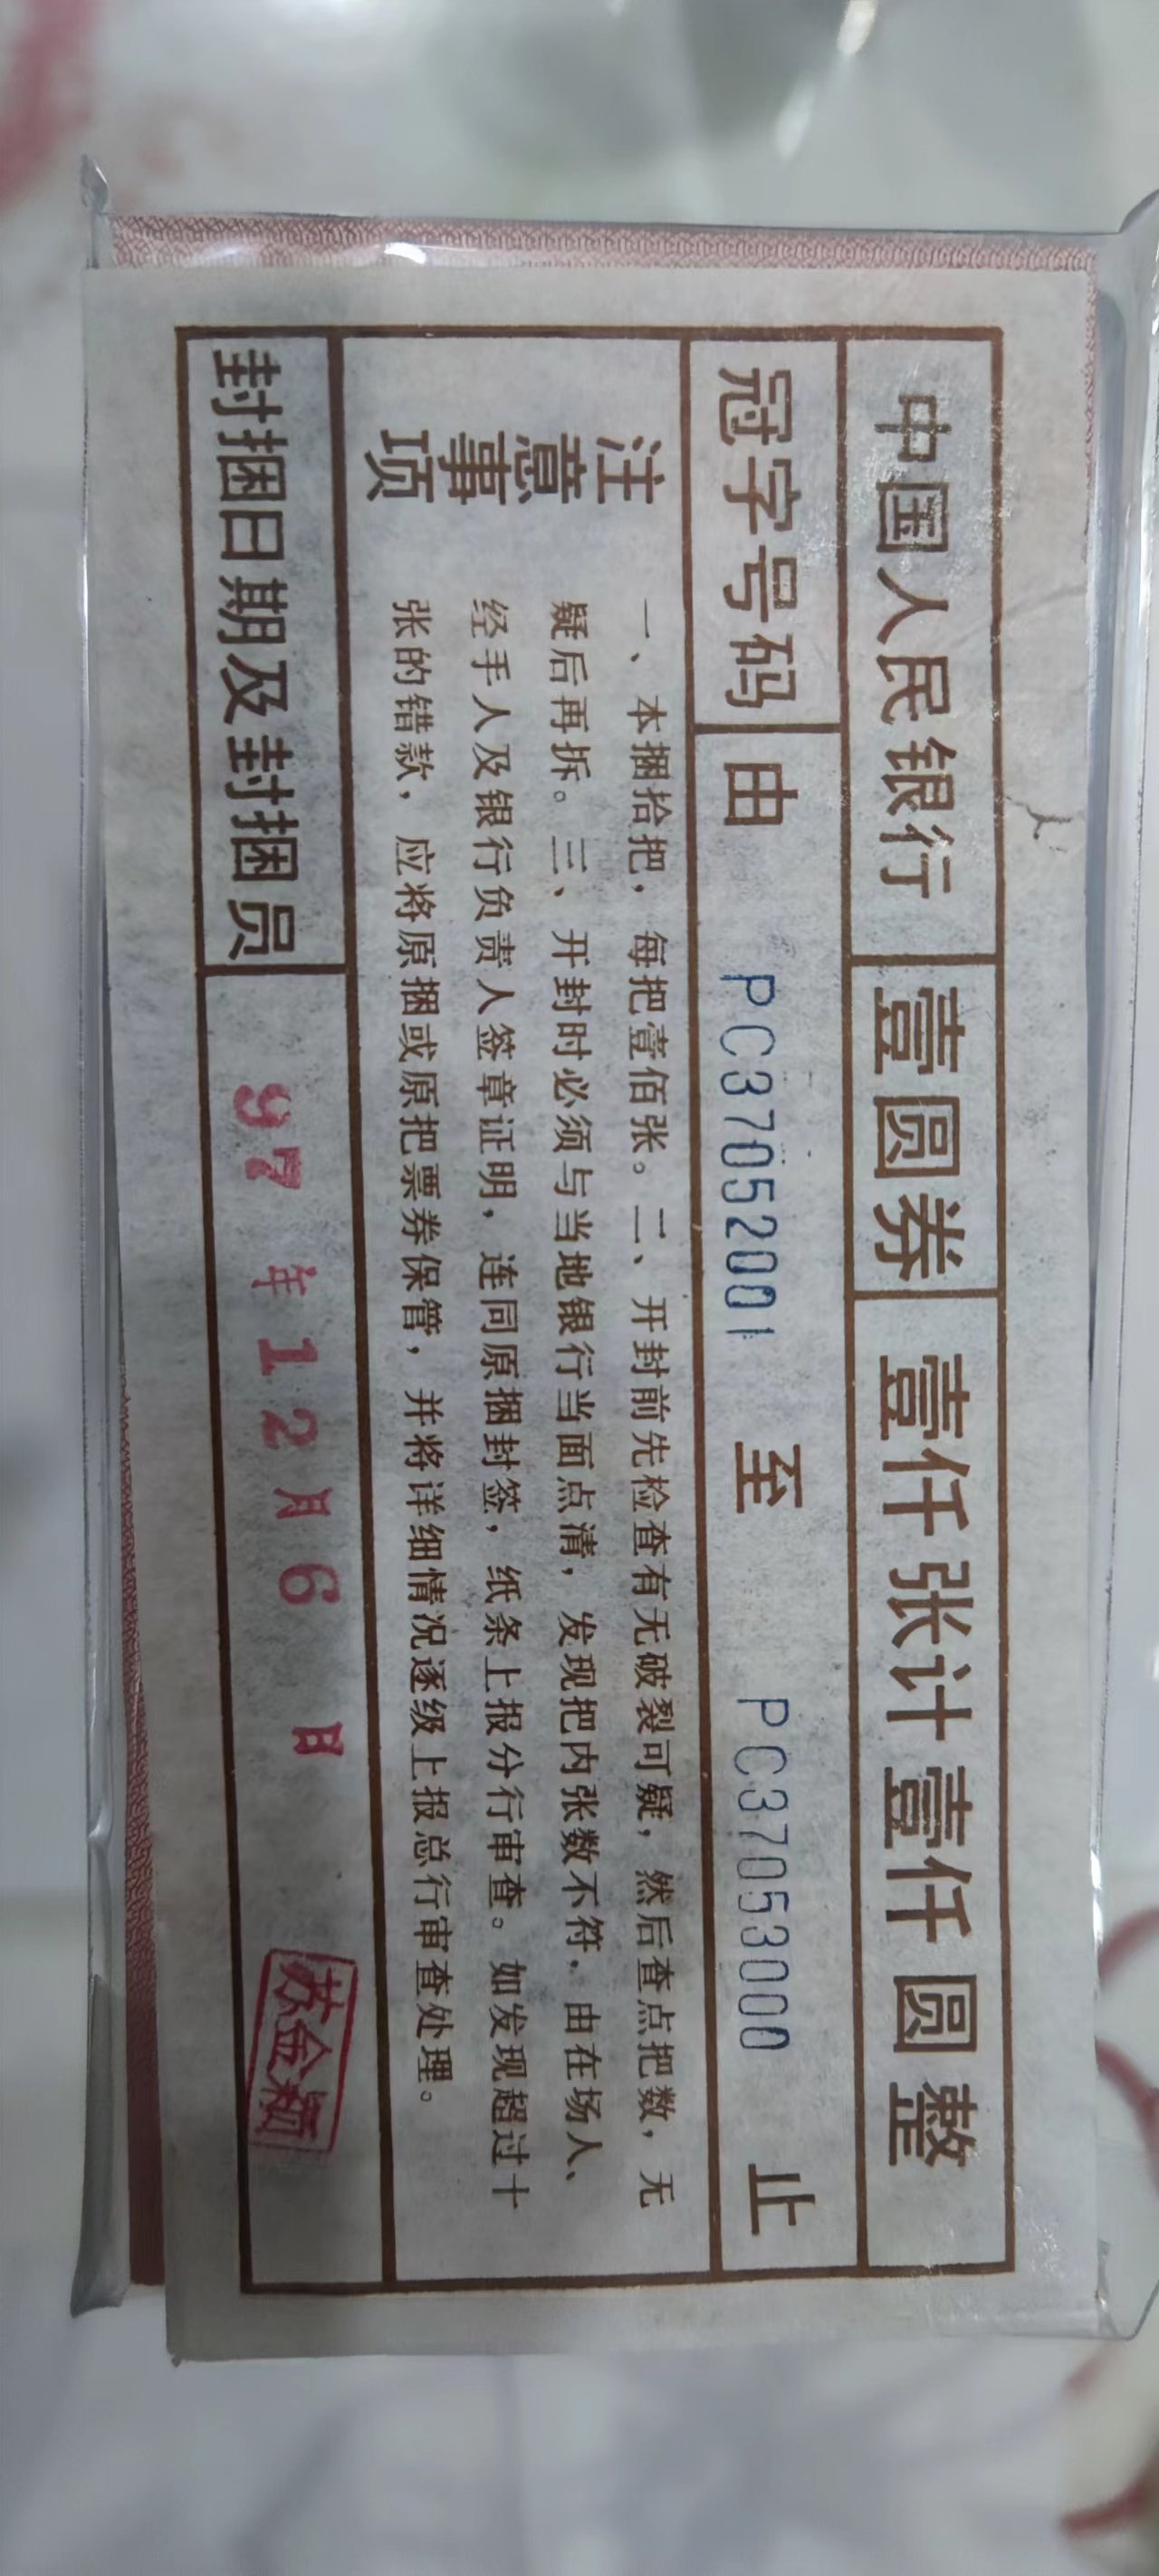 中国人民银行 壹圆券 壹仟张计壹仟圆整
冠字号码 由 PC37052001 至 PC37053000 止
注意事项
一、本捆拾把，每把壹佰张。二、开封前先检查有无破裂可疑，然后查点把数，无
疑后再拆。三、开封时必须与当地银行当面点清，发现把内张数不符，由在场人、
经手人及银行负责人签章证明，连同原捆封签，纸条上报分行审查。如发现超过十
张的错款，应将原捆或原把票券保管，并将详细情况逐级上报总行审查处理。
封捆日期及封捆员 97年12月6日 苏金颖